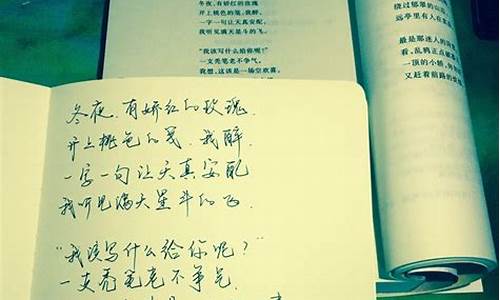 冬夜，有娇红的玫瑰
开上桃色的笺，我醉，
一字一句让天真安配，
我听见满天星斗的飞。
“我该写什么给你呢？”
一支秃笔老不争气。
我想，这该是一场空欢喜。
绕过郁翠的山
远亭里有人在
最是那迷人的
看，乱鸦正点破
一顶的小轿，
又赶着前路的
冬夜，有娇红的玫瑰，
开上桃色的笺，我醉
一字一句让天真安配
我听见满天星斗的飞
“我该写什么给你呢？”
一支秃笔老不争气.